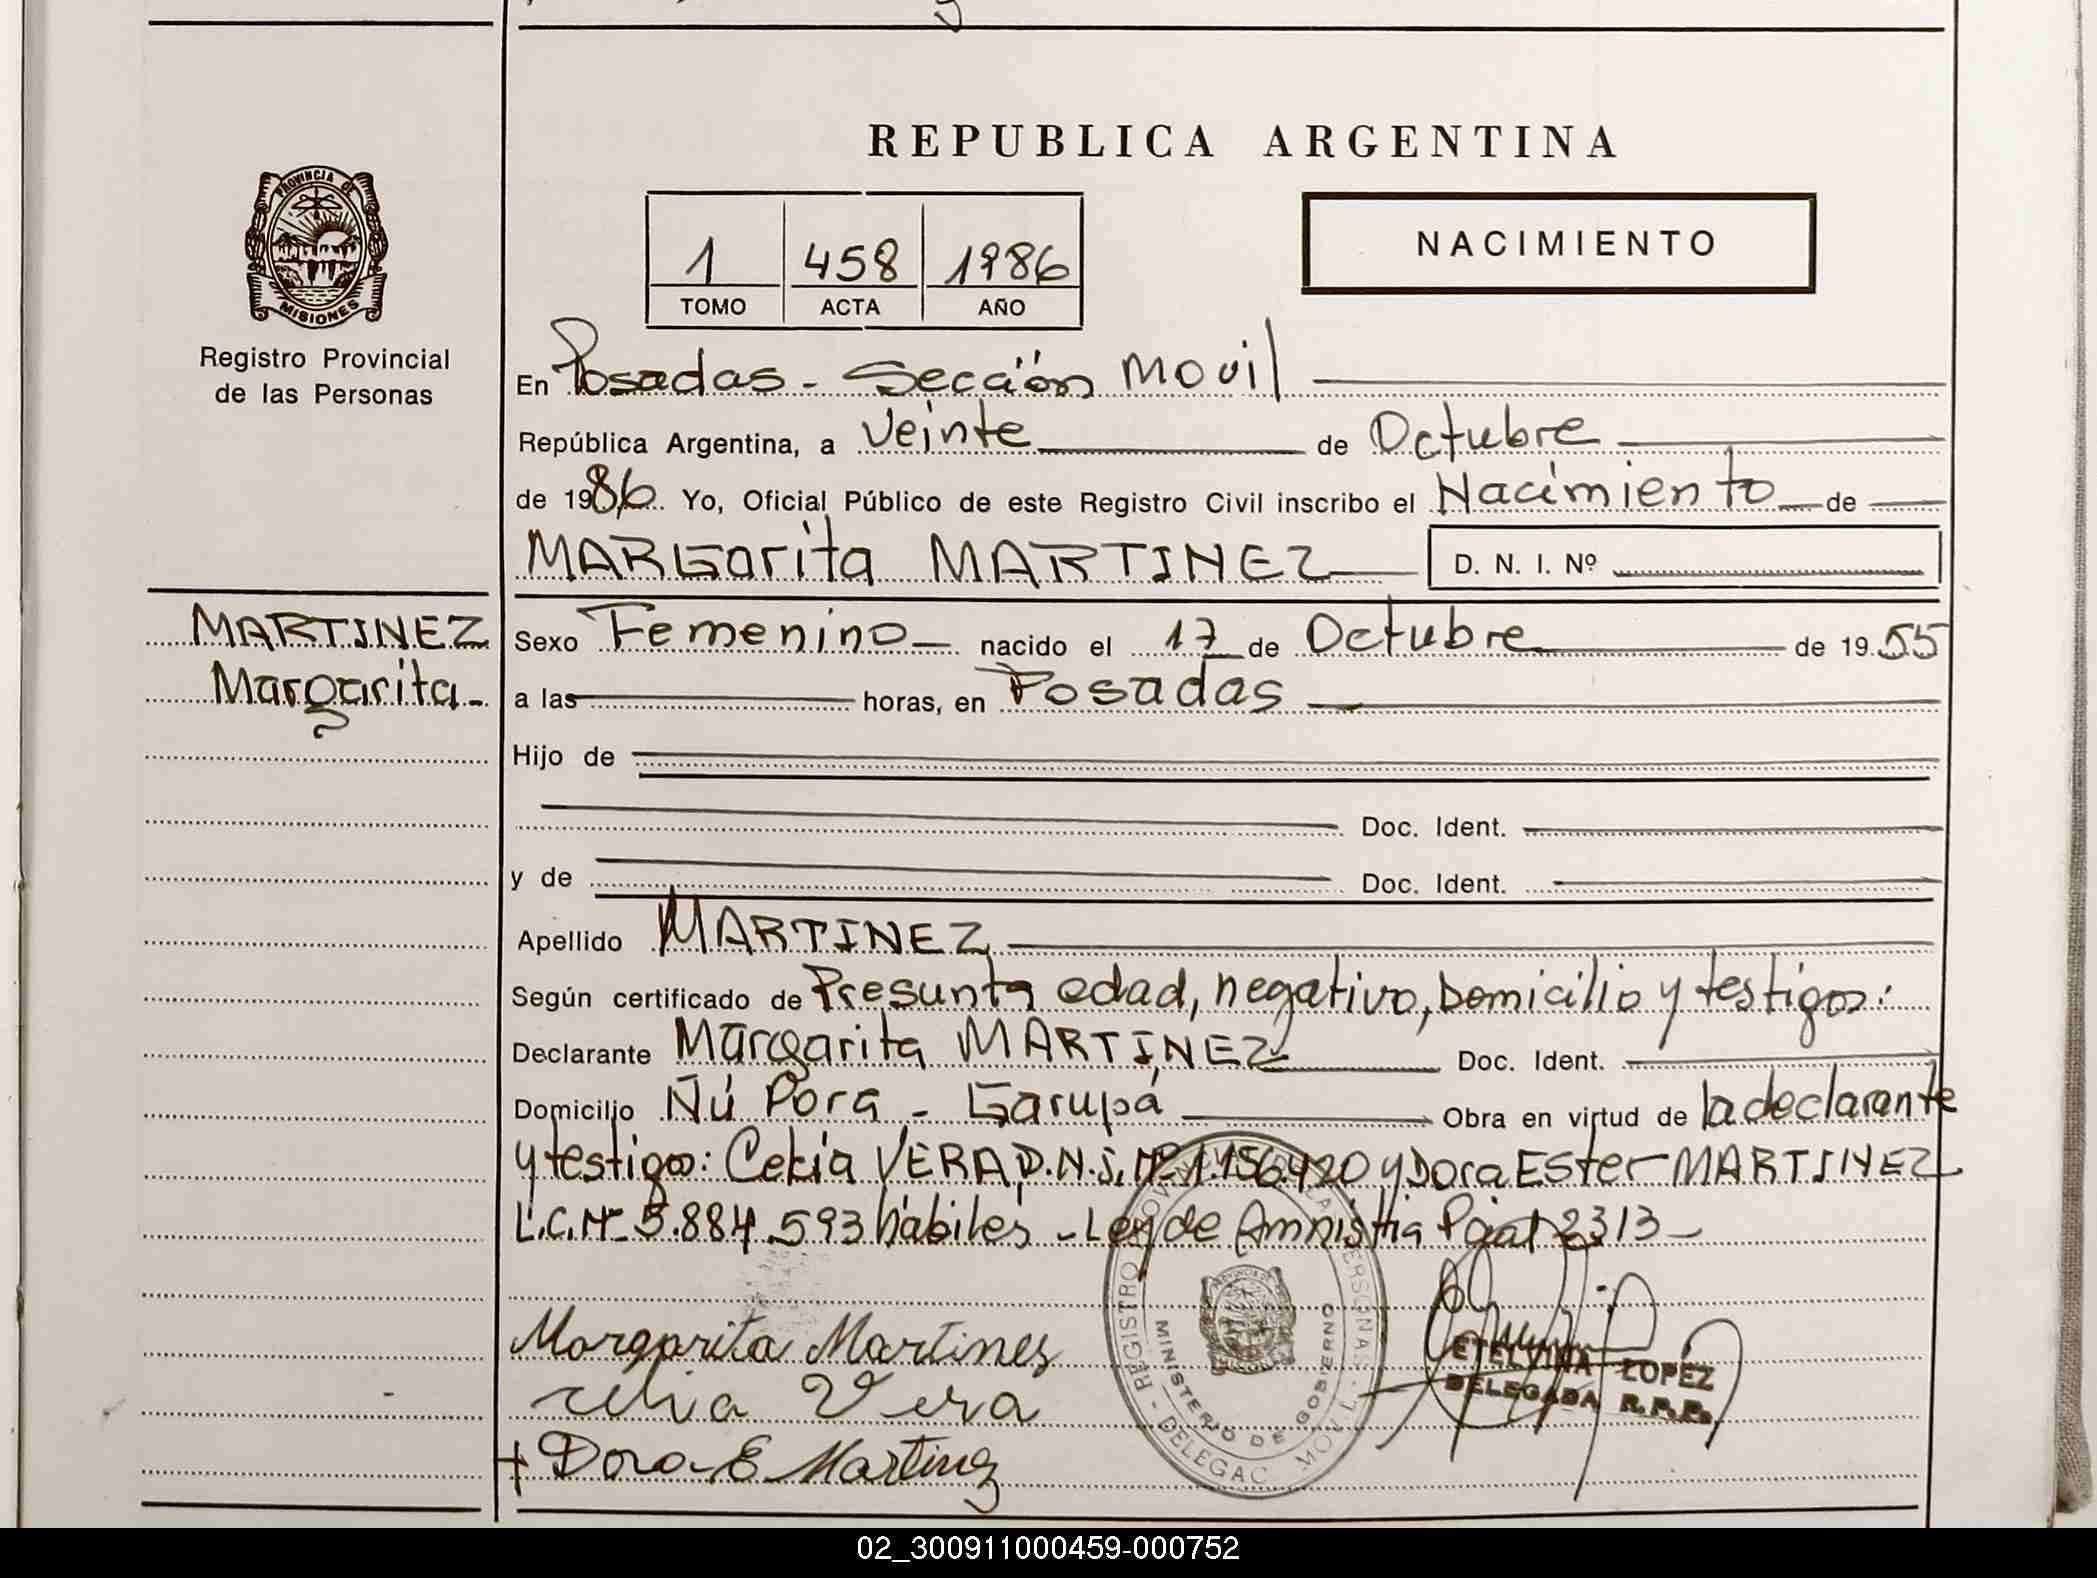 REPUBLICA ARGENTINA
PROVINCIA DE
MISIONES
Registro Provincial
de las Personas
1 458 1986
TOMO ACTA AÑO
NACIMIENTO
En Posadas - Sección Movil
República Argentina, a Veinte de Octubre
de 1986. Yo, Oficial Público de este Registro Civil inscribo el Nacimiento de
MARGarita MARTINEZ D. N. I. Nº
MARTINEZ
Margarita -
Sexo Femenino nacido el 17 de Octubre de 1955
a las horas, en Posadas
Hijo de
Doc. Ident.
y de Doc. Ident.
Apellido MARTINEZ
Según certificado de Presunta edad, negativo, Domicilio y testigos:
Declarante Margarita MARTINEZ Doc. Ident.
Domicilio Ñú Pora - Garupá Obra en virtud de la declarante
y testigos: Celia VERA D.N.I. Nº 1.156.420 y Dora Ester MARTINEZ
L.C. Nº 5.884.593 hábiles - Ley de Amnistia Pcial 2313 -
Margarita Martines
celia Vera
Dora E Martinez
MINISTERIO DE GOBIERNO
ETELVINA LOPEZ
DELEGADA R.P.P.
02_300911000459-000752